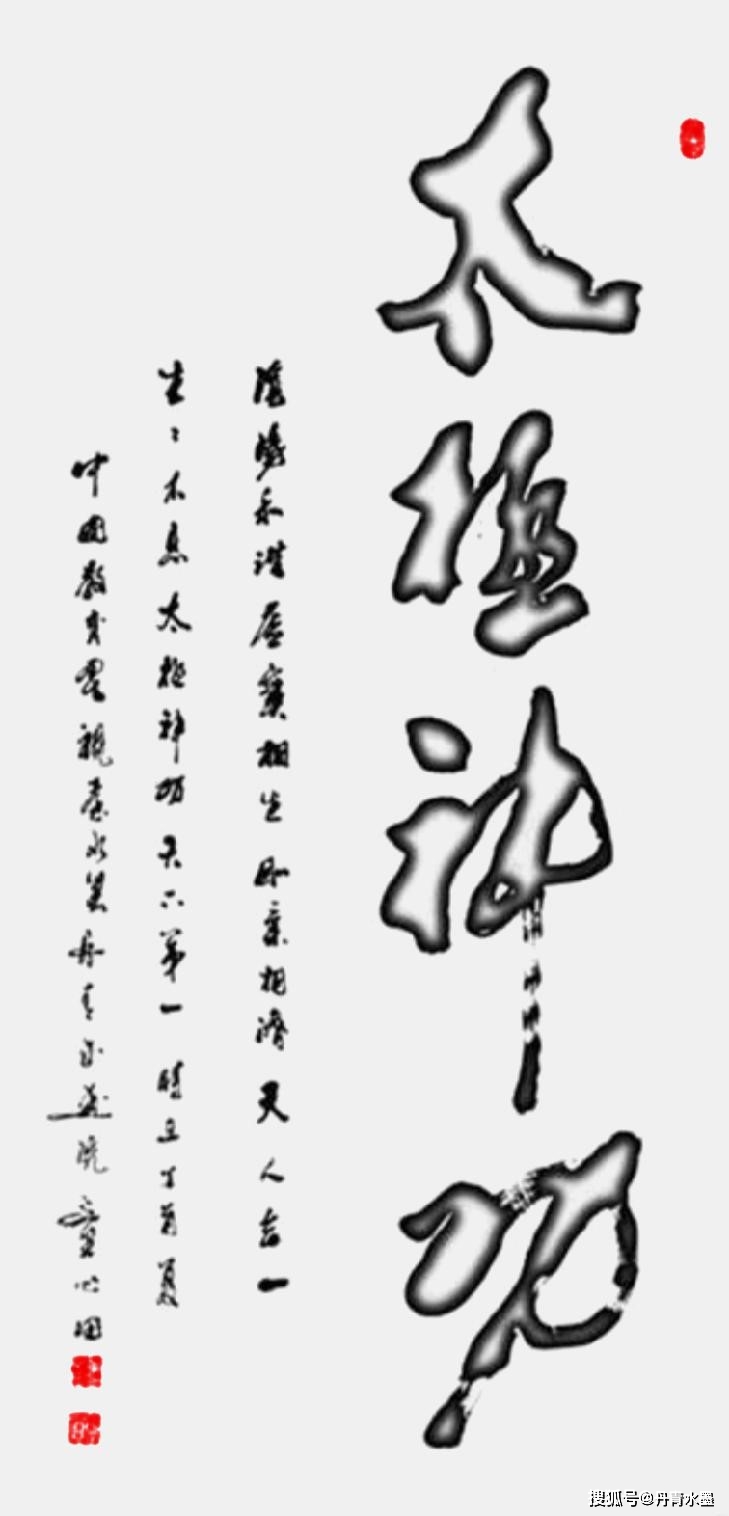 太極神功
陰陽和諧虛實相生剛柔相濟天人合一
生〻不息太極神功天下第一時在丁酉夏
中國教育電視臺水墨丹青書畫院童心
搜狐号@丹青水墨